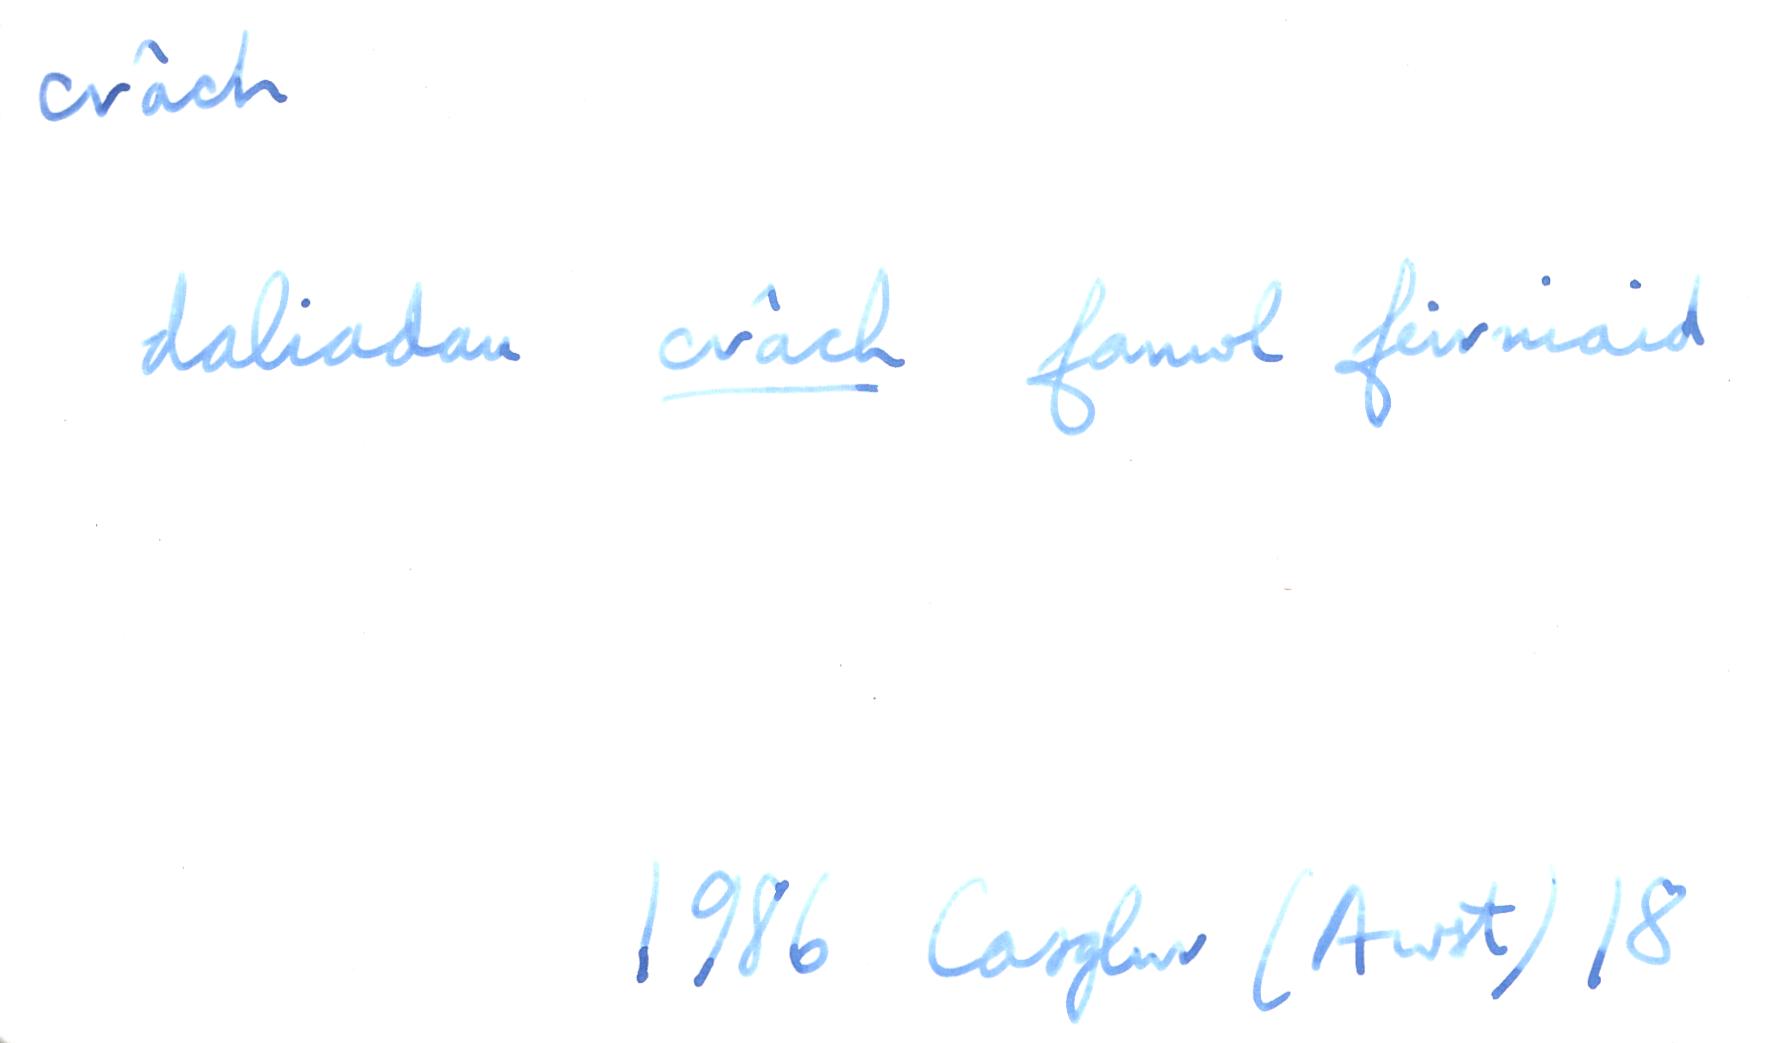 crâch
daliadau crâch fanwl feirniaid
1986 Casglwr (Awst) 18